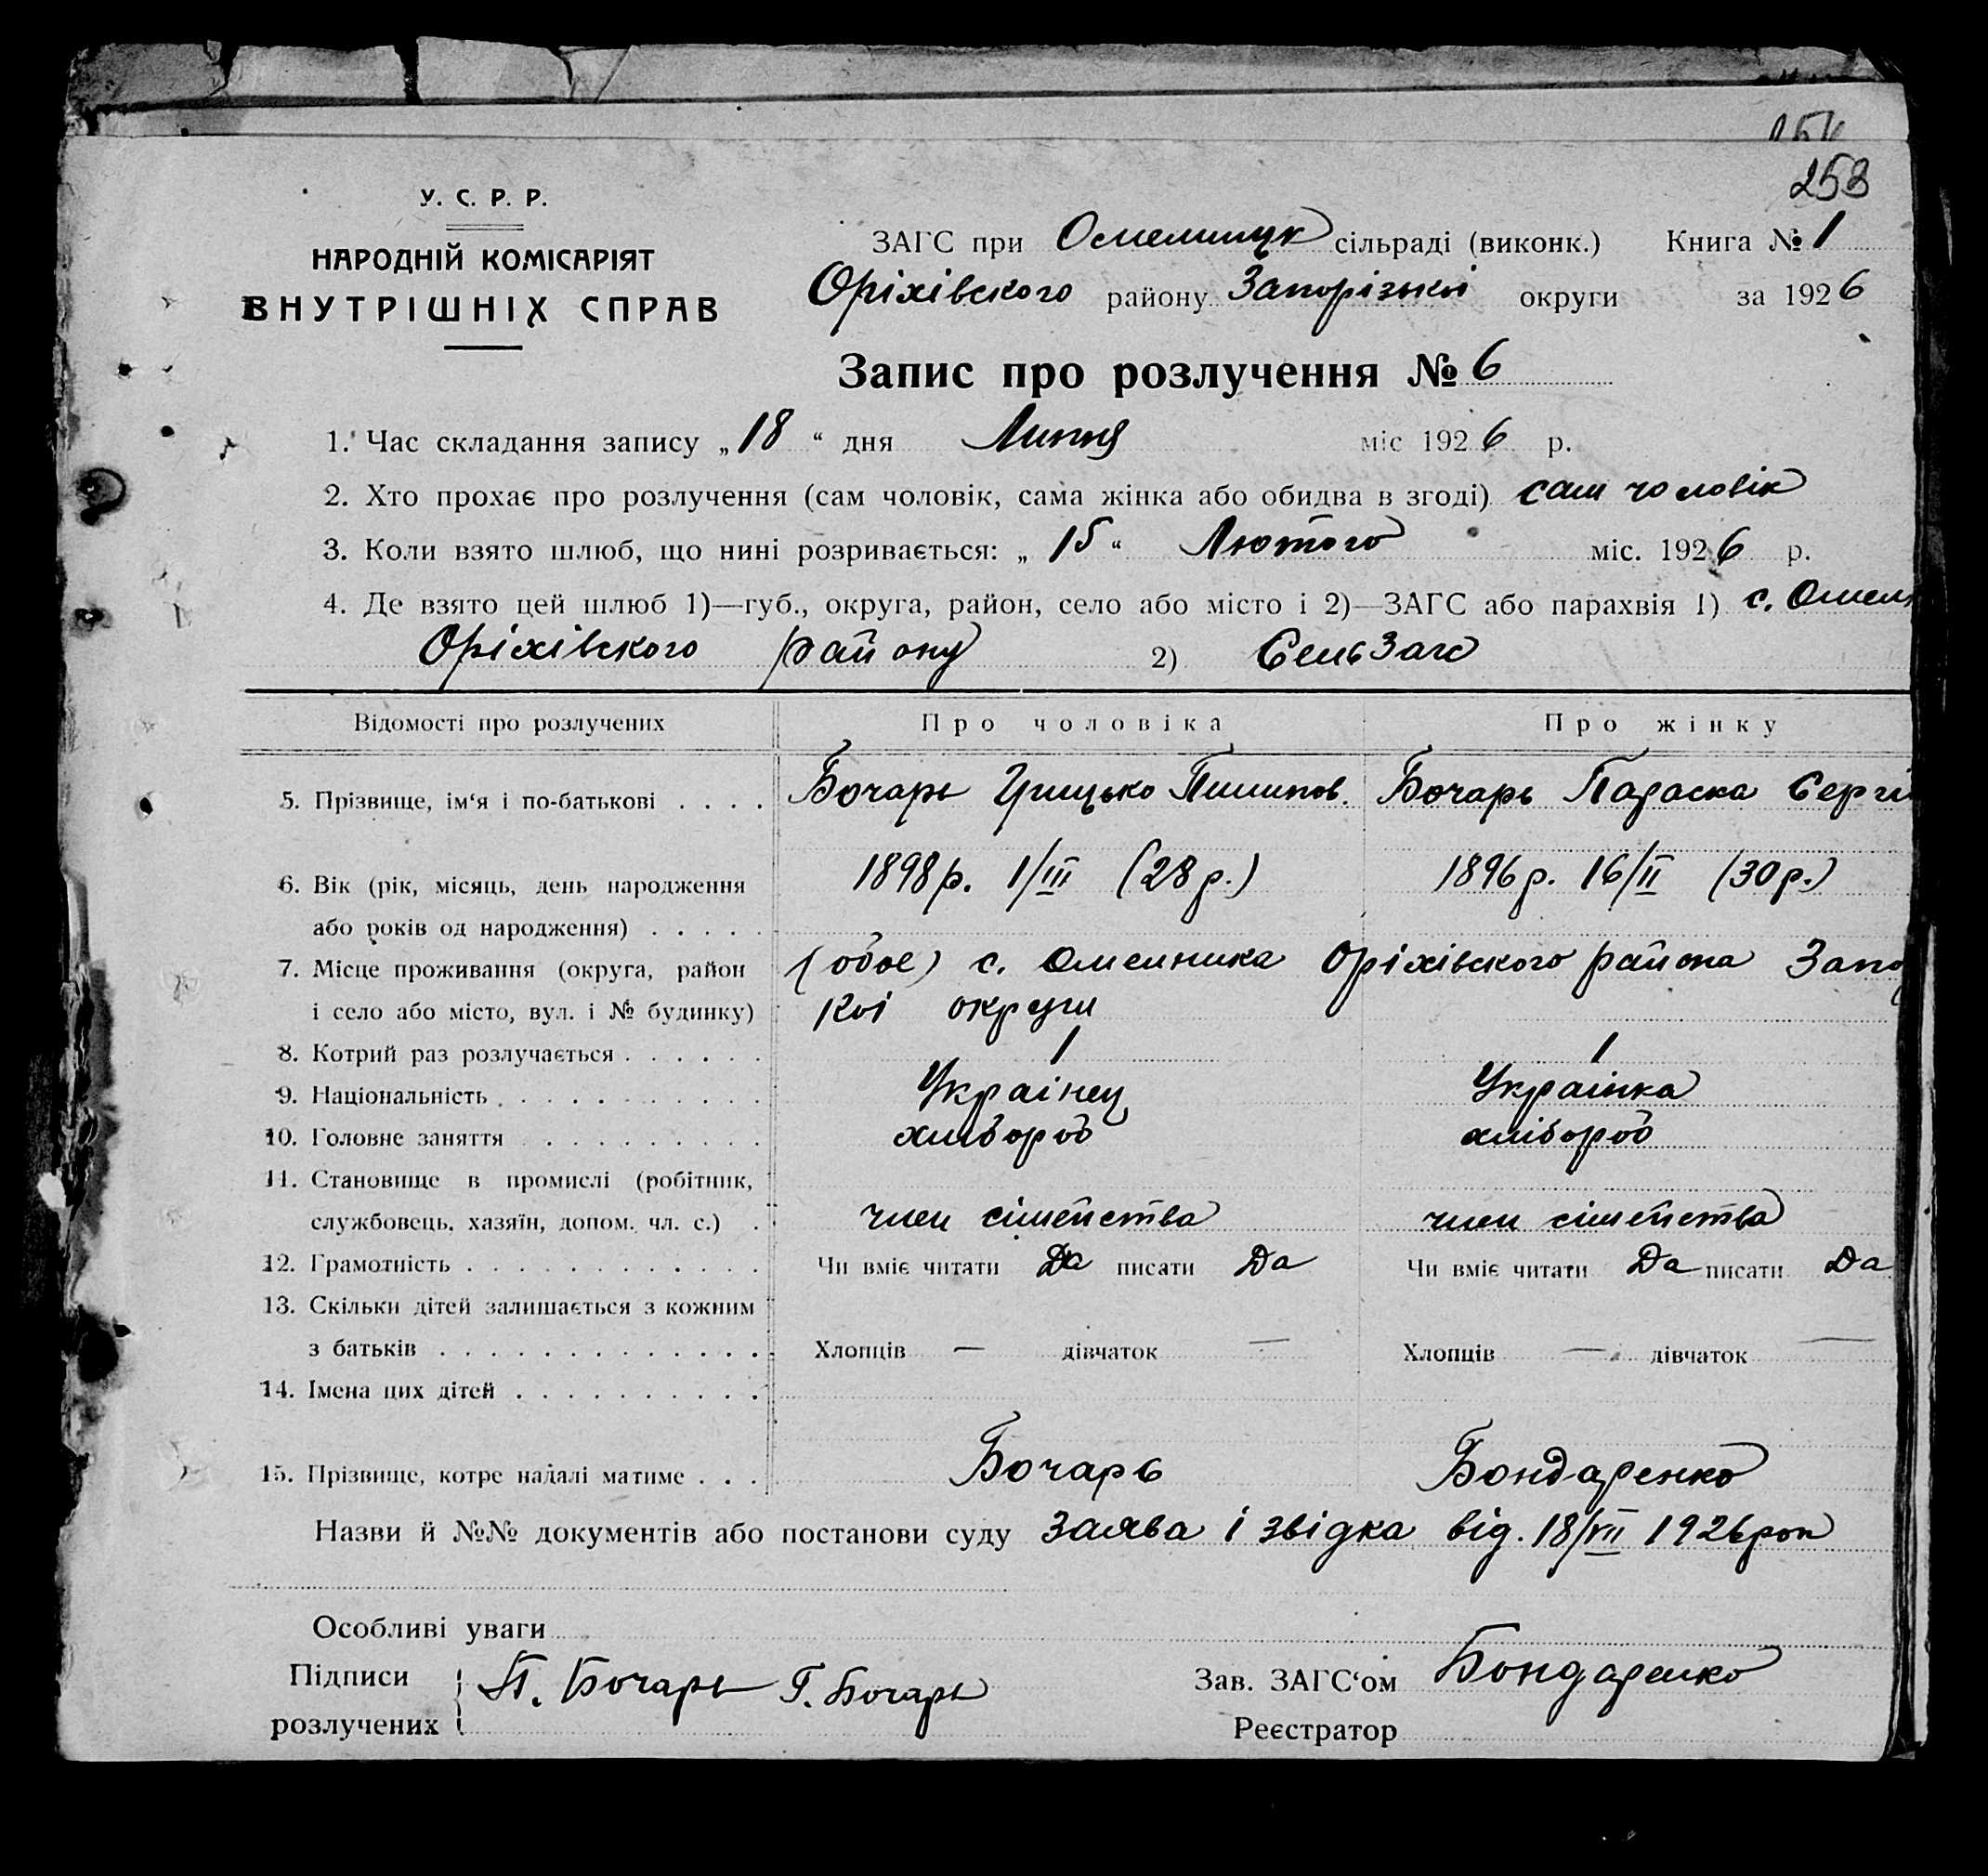 253
У. С. Р. Р.
НАРОДНІЙ КОМІСАРІЯТ
ВНУТРІШНІХ СПРАВ
ЗАГС при сільраді (виконк.) Книга № 1
Оріхівского району Запорізькоі округи за 1926
Запис про розлучення № 6
1. Час складання запису „18“ дня Липня міс 1926 р.
2. Хто прохає про розлучення (сам чоловік, сама жінка або обидва в згоді) сам чоловік
3. Коли взято шлюб, що нині розривається: „15“ Лютого міс. 1926 р.
4. Де взято цей шлюб 1)—губ., округа, район, село або місто і 2)—ЗАГС або парахвія 1) с. Омель
Оріхівского району 2) СельЗагс
Відомості про розлучених Про чоловіка Про жінку
5. Прізвище, ім‘я і по-батькові . . . . Бочарь Грицько Пилипов. Бочарь Параска Сергі
6. Вік (рік, місяць, день народження 1898р. 1/III (28р.) 1896р. 16/II (30р.)
або років од народження) . . . . .
7. Місце проживання (округа, район (обое) с. Омелника Оріхівского района Запо
і село або місто, вул. і № будинку) коі округи
8. Котрий раз розлучається . . . . . . 1 1
9. Національність . . . . . . . . . . . Украінец Украінка
10. Головне заняття . . . . . . . . . хлібороб хлібороб
11. Становище в промислі (робітник,
службовець, хазяїн, допом. чл. с.) . член сімейства член сімейства
12. Грамотність . . . . . . . . . . . . Чи вміє читати Да писати Да Чи вміє читати Да писати Да
13. Скільки дітей залишається з кожним
з батьків . . . . . . . . . . . . . . Хлопців — дівчаток — Хлопців — дівчаток —
14. Імена цих дітей . . . . . . . . . .
15. Прізвище, котре надалі матиме . . . Бочарь Бондаренко
Назви й №№ документів або постанови суду Заява і звідка від. 18/VII 1926рок
Особливі уваги
Підписи П. Бочарь Г. Бочарь Зав. ЗАГС‘ом Бондаренко
розлучених Реєстратор